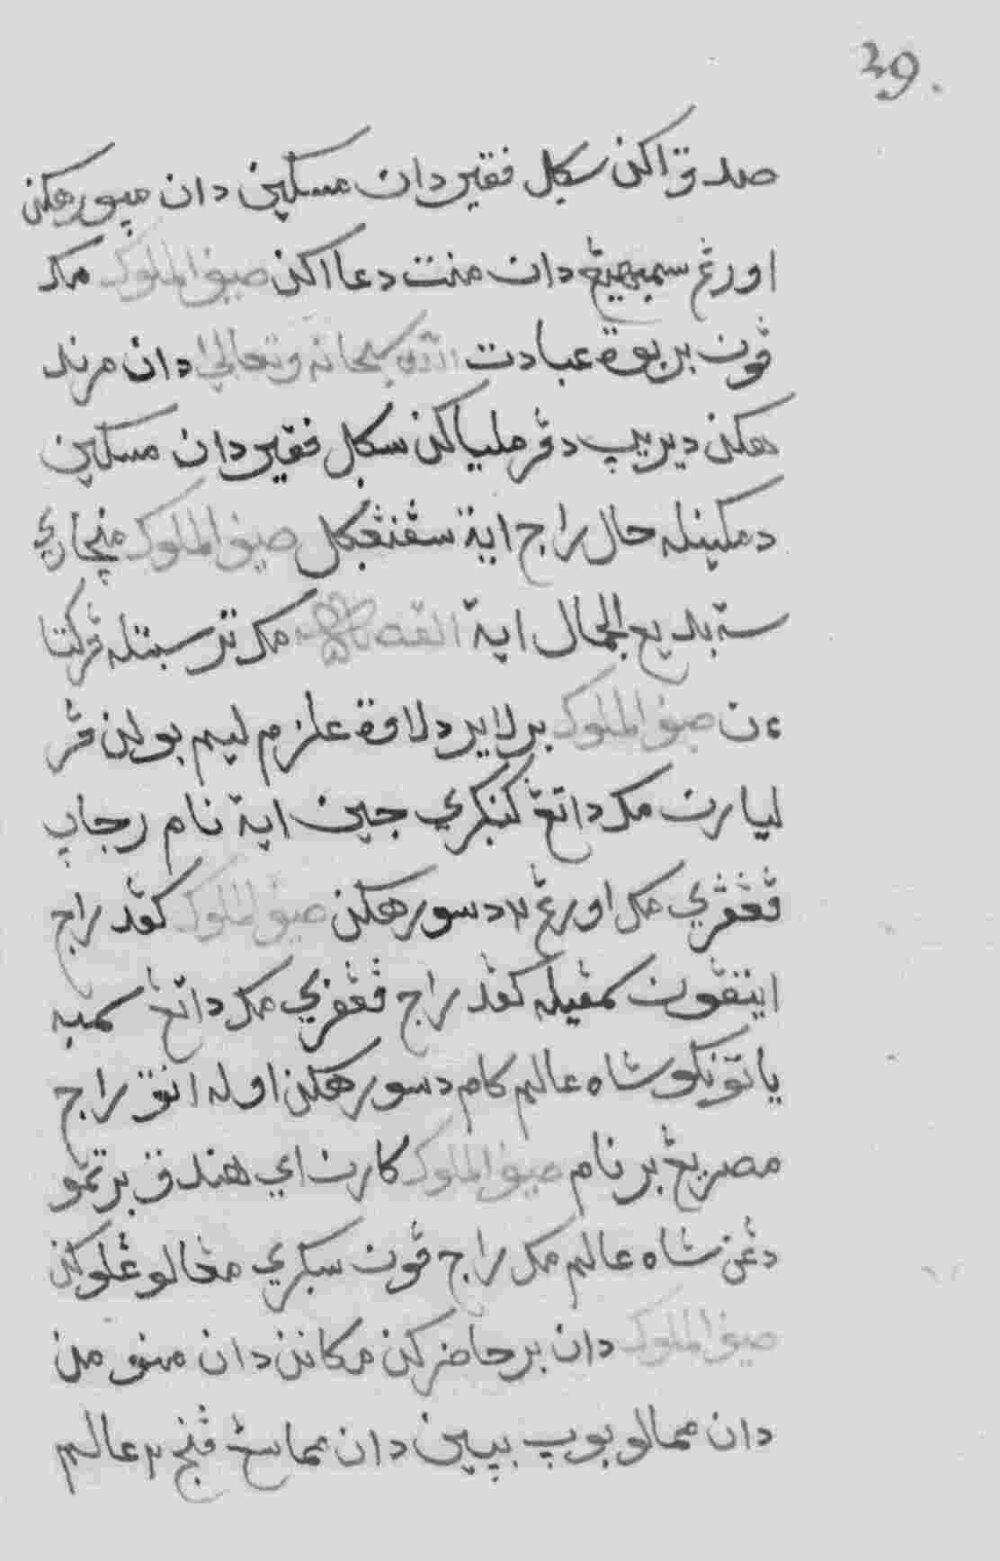 39.
صدقه اکن سکل فقير دان مسکين دان مپورهکن
اورڠ سمبهيڠ دان منت دعا اکن صيف الملوک مک
ڤون بربوة عبادت الله سبحانه وتعالى دان مرند
هکن ديريپ دڤرملياکن سکل فقير دان مسکين
دمکينله حال راج ايت سڤننڠکل صيف الملوک منچاري
ست بديع الجمال ايت القصه مک ترسبتله ڤرکتا
ءن صيف الملوک برلاير دلاوة علزم ليم بولن ڤر
ليارن مک داتڠ کنکري جين ايت نام رجاپ
ڤڠڤري مک اورڠ٢ دسورهکن صيف الملوک کڤد راج
ايتڤون کمڤيله کڤد راج ڤڠڤري مک داتڠ سمبه
يا توانکو شاه عالم کام دسورهکن اوله انق راج
مصر يڠ برنام صيف الملوک کارن اي هندق برتمو
دڠن شاه عالم مک راج ڤون سکري مڠالوڠلوکن
صيف الملوک دان برحاضرکن مکانن دان مينومن
دان ممالو بوپي بپين دان مماسڠ ڤنج٢ عالم